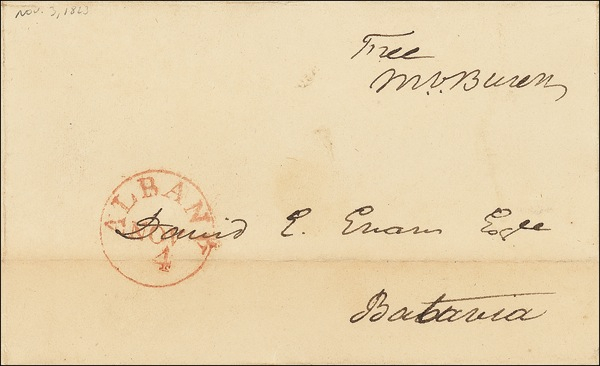 Nov. 3, 1823
Free
M.V.Buren
ALBANY
NOV
4
David E. Evans Esqe
Batavia